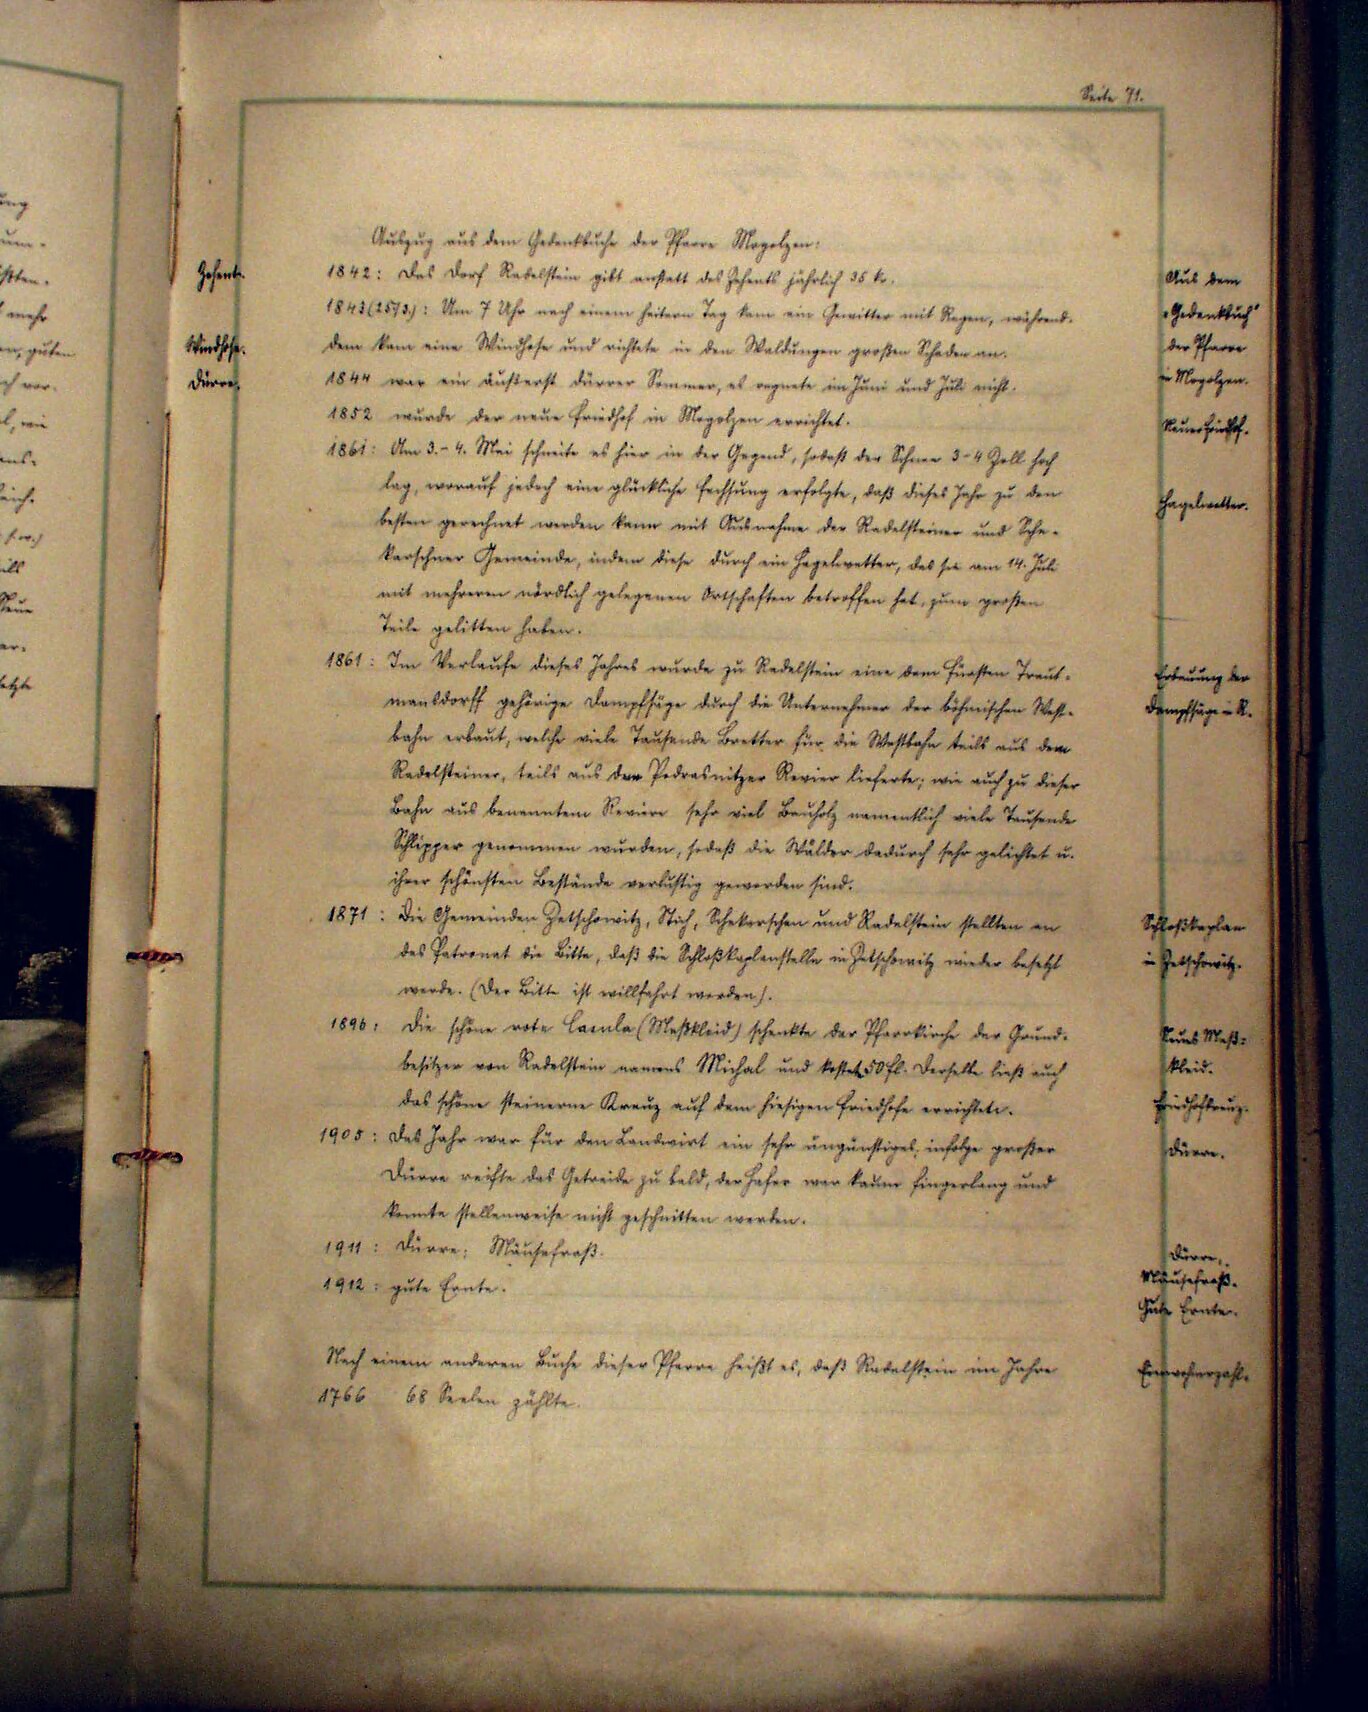 Seite 71.
Auszug aus dem Gedenkbuche der Pfarre Mogolzen:
Zehent.
1842: Das Dorf Radelstein gibt anstatt des Zehents jährlich 36 kr.
1843 (25/3.): Um 7 Uhr nach einem heitern Tag kam ein Gewitter mit Regen, während-
Windhose.
dem kam eine Windhose und richtete in den Waldungen großen Schaden an.
Dürre.
1844 war ein äußerst dürrer Sommer, es regnete im Juni und Juli nicht.
1852 wurde der neue Friedhof in Mogolzen errichtet.
1861: Am 3.-4. Mai schneite es hier in der Gegend, sodaß der Schnee 3-4 Zoll hoch
lag, worauf jedoch eine glückliche Fechsung erfolgte, daß dieses Jahr zu den
besten gerechnet werden kann mit Ausnahme der Radelsteiner und Sche-
karschner Gemeinde, indem diese durch ein Hagelwetter, das sie am 14. Juli
mit mehreren nördlich gelegenen Ortschaften betroffen hat, zum großen
Teile gelitten haben.
1861: Im Verlaufe dieses Jahres wurde zu Radelstein eine dem Fürsten Traut-
mansdorff gehörige Dampfsäge durch die Unternehmer der böhmischen West-
bahn erbaut, welche viele Tausende Bretter für die Westbahn teils aus dem
Radelsteiner, teils aus dem Podrasnitzer Revier lieferte; wie auch zu dieser
Bahn aus benanntem Reviere sehr viel Bauholz namentlich viele Tausende
Schlipper genommen wurden, sodaß die Wälder dadurch sehr gelichtet u.
ihrer schönsten Bestände verlustig geworden sind.
1871: Die Gemeinden Zetschowitz, Stich, Schekarschen und Radelstein stellten an
das Patronat die Bitte, daß die Schloßkaplanstelle in Zetschowitz wieder besetzt
werde. (Der Bitte ist willfahrt worden).
1896: Die schöne rote Casula (Meßkleid) schenkte der Pfarrkirche der Grund-
besitzer von Radelstein namens Michal und kostet 50 fl. Derselbe ließ auch
das schöne steinerne Kreuz auf dem hiesigen Friedhofe errichten.
1905: Das Jahr war für den Landwirt ein sehr ungünstiges; infolge großer
Dürre reifte das Getreide zu bald, der Hafer war kaum fingerlang und
konnte stellenweise nicht geschnitten werden.
1911: Dürre; Mäusefraß.
1912: gute Ernte.
Nach einem anderen Buche dieser Pfarre heißt es, daß Radelstein im Jahre
1766 68 Seelen zählte.
Aus dem
"Gedenkbuch"
der Pfarre
in Mogolzen.
Neuer Friedhof.
Hagelwetter.
Erbauung der
Dampfsäge in R.
Schloßkaplan
in Zetschowitz.
Neues Meß-
kleid.
Friedhofkreuz.
Dürre.
Dürre,
Mäusefraß.
Gute Ernte.
Einwohnerzahl.